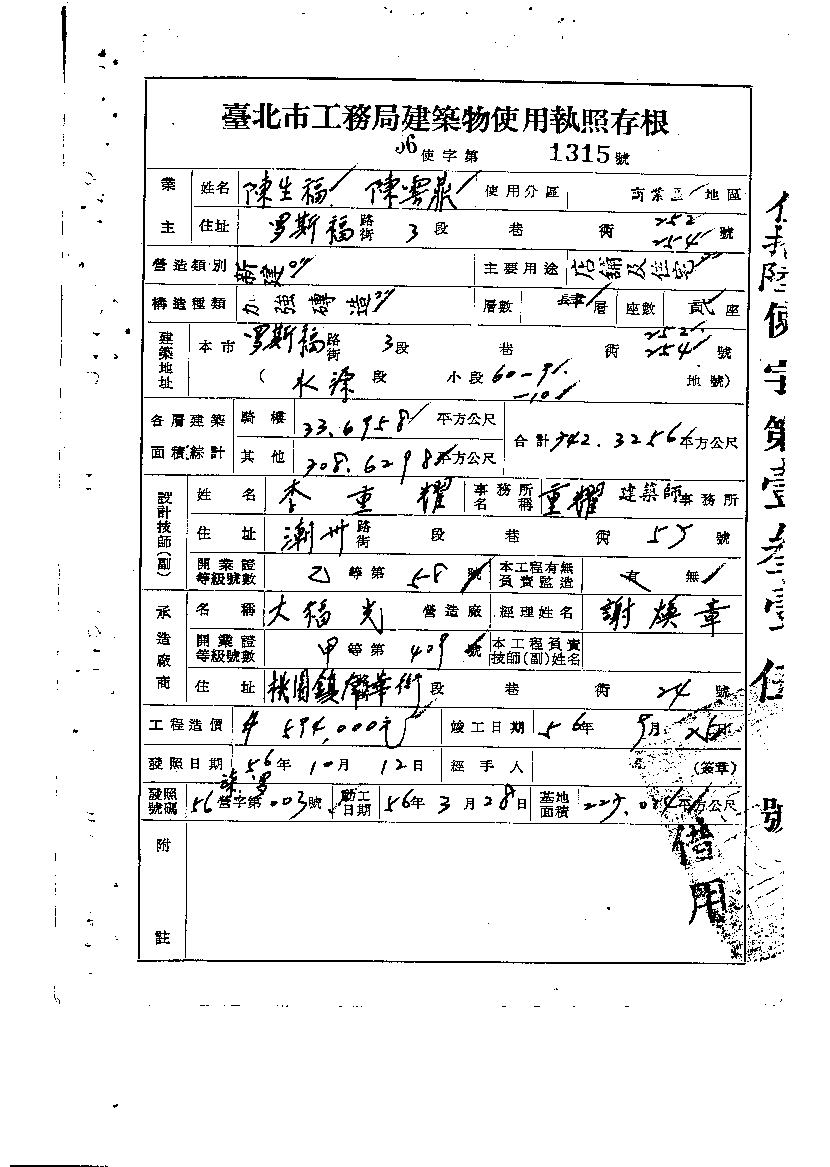 臺北市工務局建築物使用執照存根
56使字第 1315號
業主 姓名 陳生福 陳雲鼎 使用分區 商業區 地區
住址 罗斯福路街 3段 巷 衖 252 254 號
營造類別 新建 主要用途 店鋪及住宅
構造種類 加強磚造 層數 層 座數 貳座
建築地址 本市 罗斯福路街 3段 巷 衖 252 254 號
( 水源段 小段 60-9 -10 地號)
各層建築面積綜計 騎樓 33.6958 平方公尺 合計 342.3256 平方公尺
其他 308.6298 平方公尺
設計技師(副) 姓名 李重耀 事務所名稱 重耀建築師事務所
住址 潮州路街 段 巷 衖 57 號
開業證等級號數 乙等第 58 號 本工程有無負責監造 有 無
承造廠商 名稱 大福光 營造廠 經理姓名 謝煥章
開業證等級號數 甲等第 409 號 本工程負責技師(副)姓名
住址 桃園鎮 華街 段 巷 衖 24 號
工程造價 # 594,000元 竣工日期 56年 9月 25日
發照日期 56年 10月 12日 經手人 (簽章)
發照號碼 56營字第003號 動工日期 56年 3月 28日 基地面積 平方公尺
附註
借用
伍拾陸使字第壹叁壹伍號